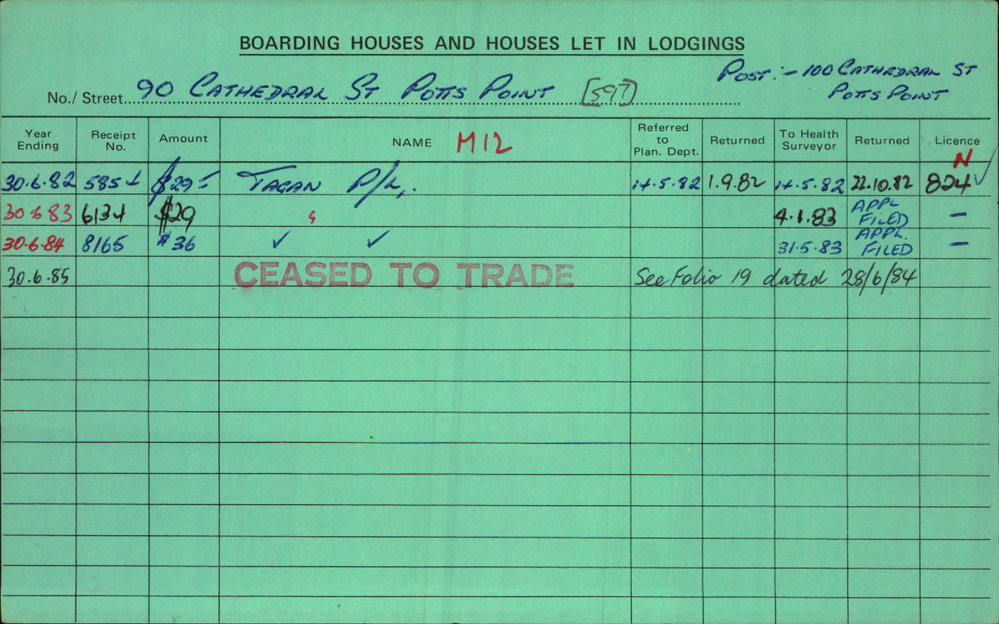 BOARDING HOUSES AND HOUSES LET IN LODGINGS
POST:- 100 CATHEDRAL ST
POTTS POINT
No./ Street 90 CATHEDRAL ST POTTS POINT [597]
Year Ending Receipt No. Amount NAME M12 Referred to Plan. Dept. Returned To Health Surveyor Returned Licence
N
30.6.82 5854 $29- TAGAN P/L. 14.5.82 1.9.82 14.5.82 22.10.82 824 ✓
30.6.83 6134 $29 4.1.83 APPL FILED –
30.6.84 8165 $36 ✓ ✓ 31.5.83 APPL. FILED –
30.6.85 CEASED TO TRADE See Folio 19 dated 28/6/84